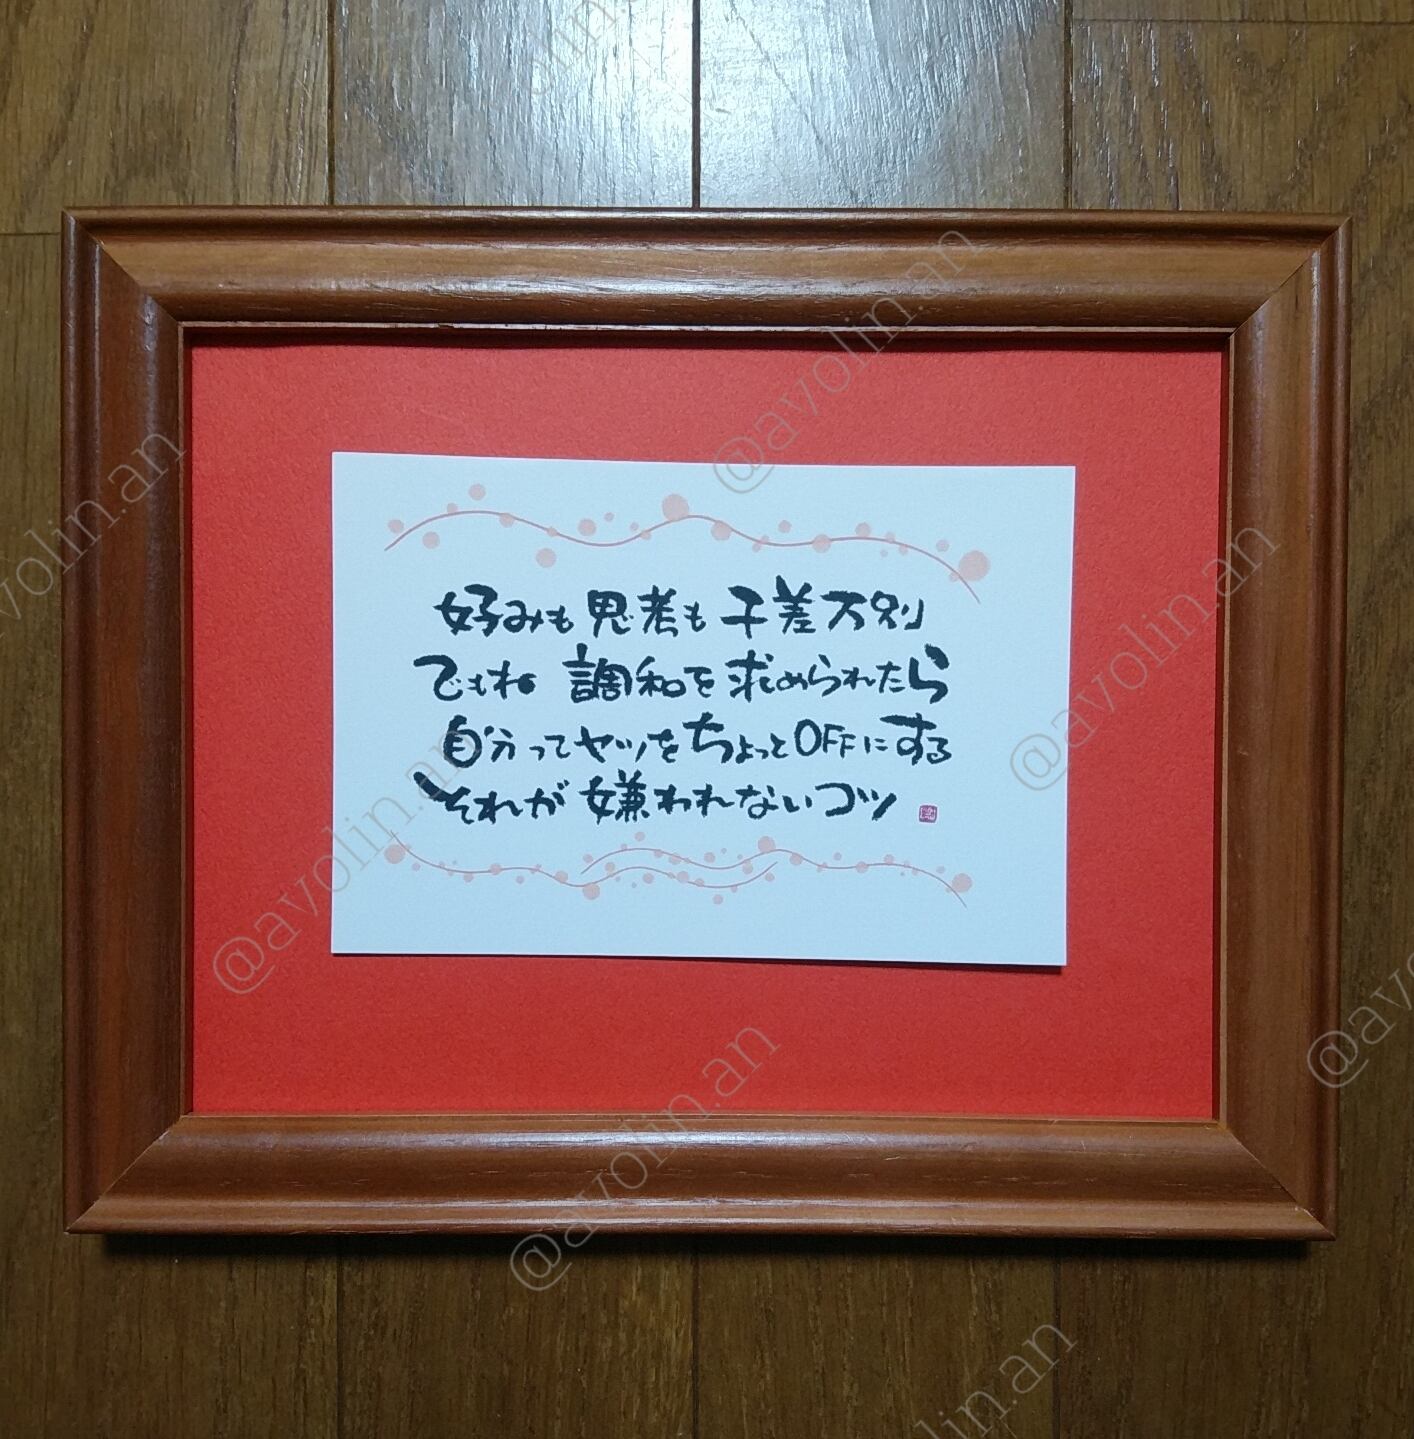 好みも思考も千差万別
でもね 調和を求められたら
自分ってヤツをちょっとOFFにする
それが嫌われないコツ
@avolin.an
@avolin.an
@avolin.an
@avolin.an